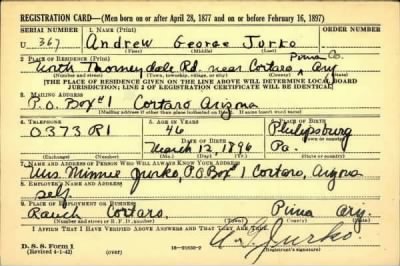 REGISTRATION CARD—(Men born on or after April 28, 1877 and on or before February 16, 1897)
SERIAL NUMBER
1. NAME (Print)
ORDER NUMBER
U 367
Andrew George Jurko
(First) (Middle) (Last)
2. PLACE OF RESIDENCE (Print)
Pima Co.
North Thorneydale Rd. near Cortaro Ariz
(Number and street) (Town, township, village, or city) (County) (State)
[THE PLACE OF RESIDENCE GIVEN ON THE LINE ABOVE WILL DETERMINE LOCAL BOARD
JURISDICTION; LINE 2 OF REGISTRATION CERTIFICATE WILL BE IDENTICAL]
3. MAILING ADDRESS
P.O. Box #1 Cortaro Arizona
[Mailing address if other than place indicated on line 2. If same insert word same]
4. TELEPHONE
5. AGE IN YEARS
6. PLACE OF BIRTH
0373 R1
46
Philipsburg
DATE OF BIRTH
March 12, 1896
Pa.
(Exchange) (Number) (Mo.) (Day) (Yr.) (State or country)
7. NAME AND ADDRESS OF PERSON WHO WILL ALWAYS KNOW YOUR ADDRESS
Mrs. Minnie Jurko, P.O Box #1 Cortaro, Arizona
8. EMPLOYER'S NAME AND ADDRESS
self
9. PLACE OF EMPLOYMENT OR BUSINESS
Ranch Cortaro, Pima Ariz.
(Number and street or R. F. D. number) (Town) (County) (State)
I AFFIRM THAT I HAVE VERIFIED ABOVE ANSWERS AND THAT THEY ARE TRUE.
D. S. S. Form 1
(Revised 4-1-42) (over)
16—21630-2
A. G. Jurko.